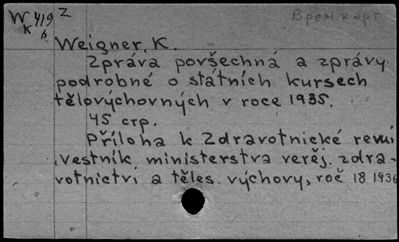 W 419 z
к 6
Врем. карт
Weigner, K.
Zpráva povšechná a zprávy
podrobné o státních kursech
tělovýchovných v roce 1935.
45 стр.
Příloha k Zdravotnické revui
.Vestník ministerstva veřej. zdra-
votnictvi a těles. výchovy, roč 18 1936